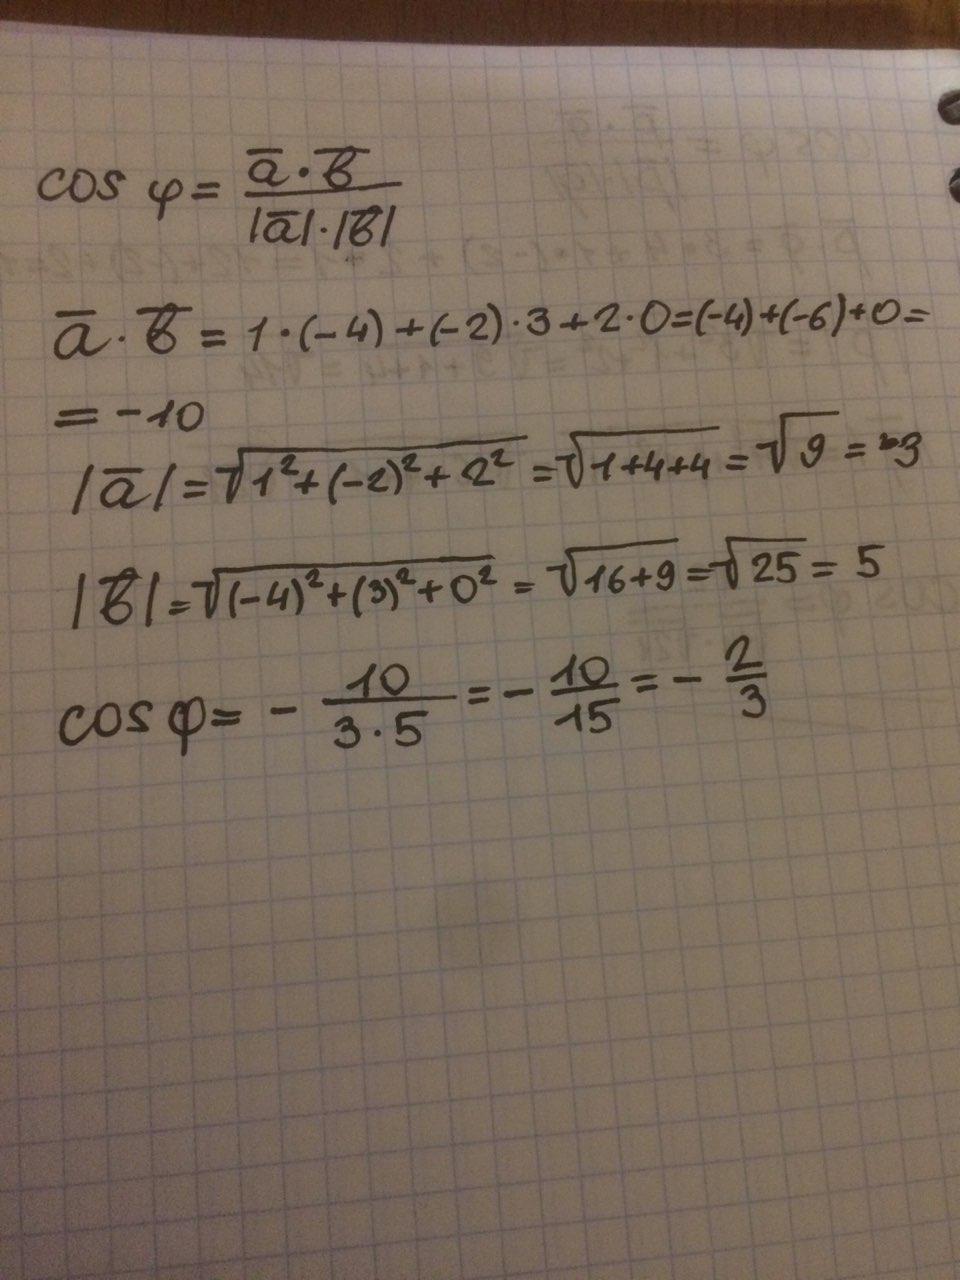 cos φ = (a̅ · b̅) / (|a̅| · |b̅|)
a̅ · b̅ = 1 · (-4) + (-2) · 3 + 2 · 0 = (-4) + (-6) + 0 =
= -10
|a̅| = √(1² + (-2)² + 2²) = √(1+4+4) = √9 = 3
|b̅| = √((-4)² + (3)² + 0²) = √(16+9) = √25 = 5
cos φ = - 10/(3 · 5) = - 10/15 = - 2/3